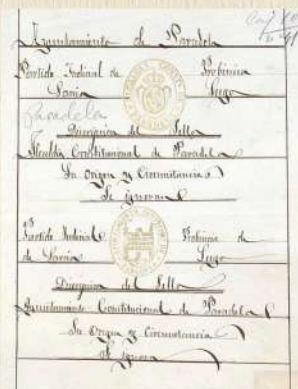 Ayuntamiento de Paradela
Partido Judicial de Sarria Probincia Lugo
Paradela
Discripcion del Sello
Alcaldía Constitucional de Paradela
Su Origen y Circunstancias
Se ignoran
Partido Judicial de Sarria Probincia de Lugo
Discripcion del Sello
Ayuntamiento Constitucional de Paradela
Su Origen y Circunstancia
Se ignora